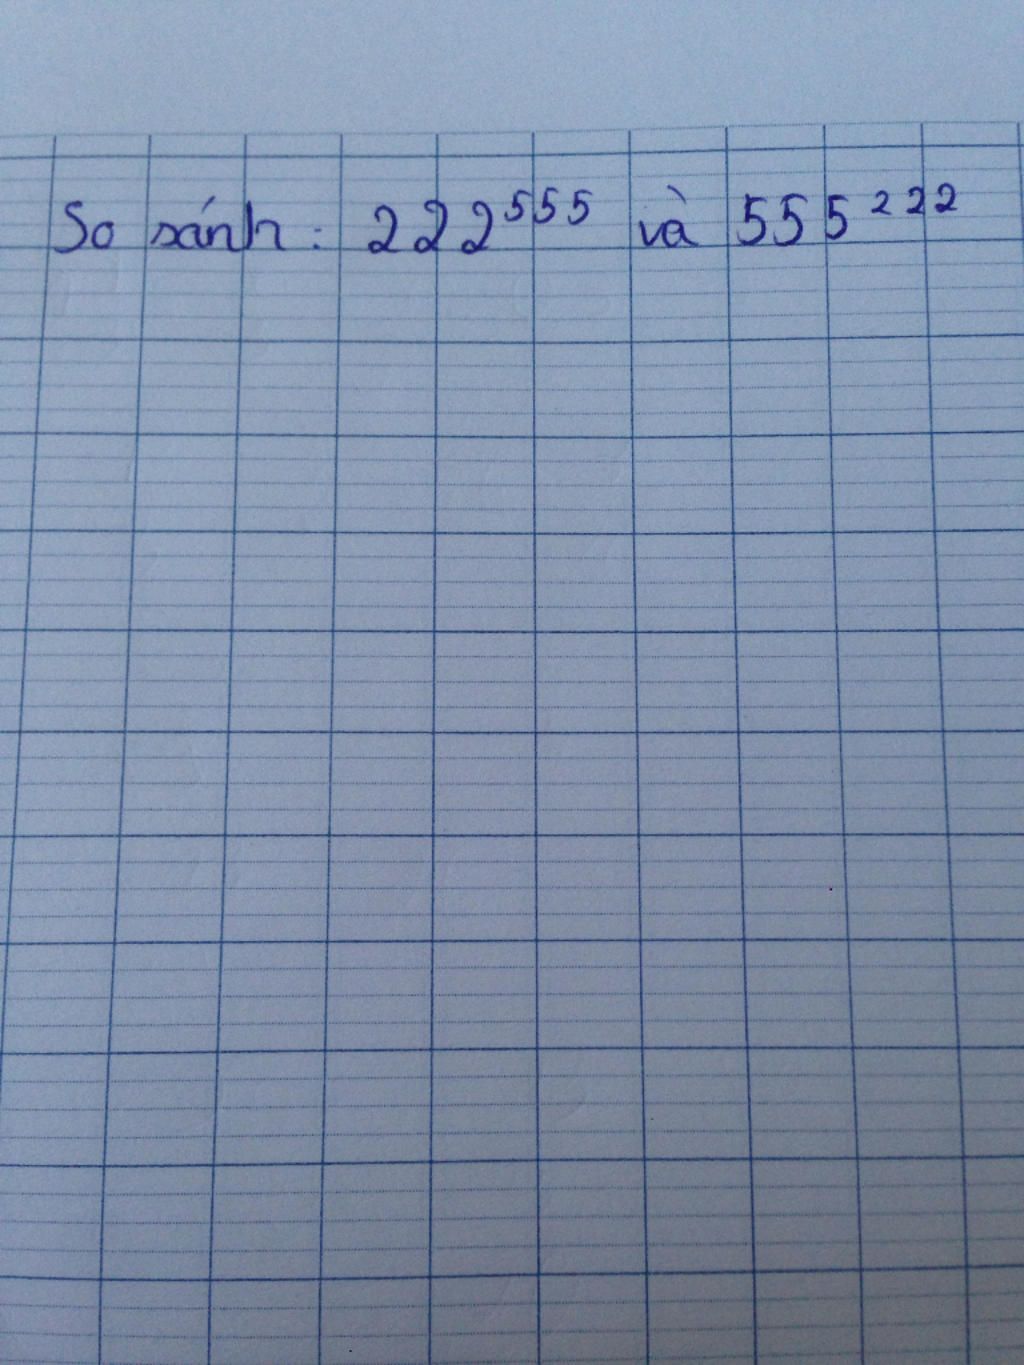 So sánh: 222⁵⁵⁵ và 555²²²